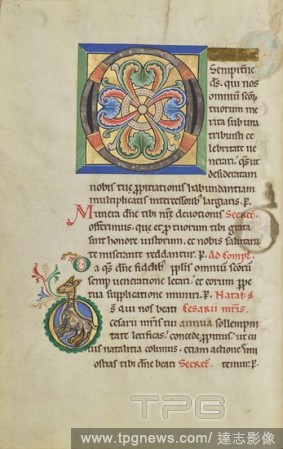 Sempit̄ne
d̄s. qui nos
omniū sc̄o
tuorum me
rita sub una
tribuisti ce
lebritate ue
nerari. q̄s ut
desideratam
nobis tuę ꝓpitiationis habundantiam
multiplicatis intercessorib; largiaris. P.
Munera dn̄e tibi nr̄ę deuotionis Secret̄.
offerimus. que et ꝓ tuorum tibi grata
sint honore iustorum. et nobis salutaria
te miserante reddantur. P. Ad Compl̄.
Da q̄s dn̄e fidelib; ppl̄is omniū sc̄orū
semp ueneratione letari. et eorum ppe
tua supplicatione muniri. P. Natał s̄
D̄s qui nos beati Cesarii mr̄is.
cesarii mr̄is tui annua sollempni
tate letificas. concede ꝓpitius. ut cu
ius natalitia colimus. etiam actiones imi
Hostias tibi dn̄e beati Secret̄. temur. P.
TPG
www.tpgnews.com/達志影像